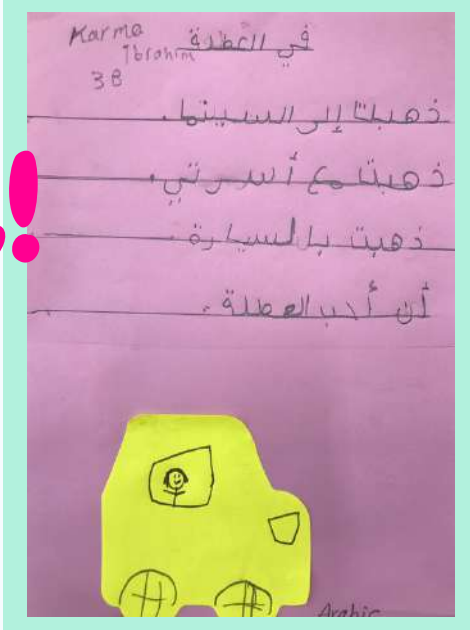 Karma
Ibrahim
3B
في العطلة
ذهبتا إلى السينما.
ذهبتا مع أسرتي.
ذهبت بالسيارة.
أن أحب العطلة.
Arabic